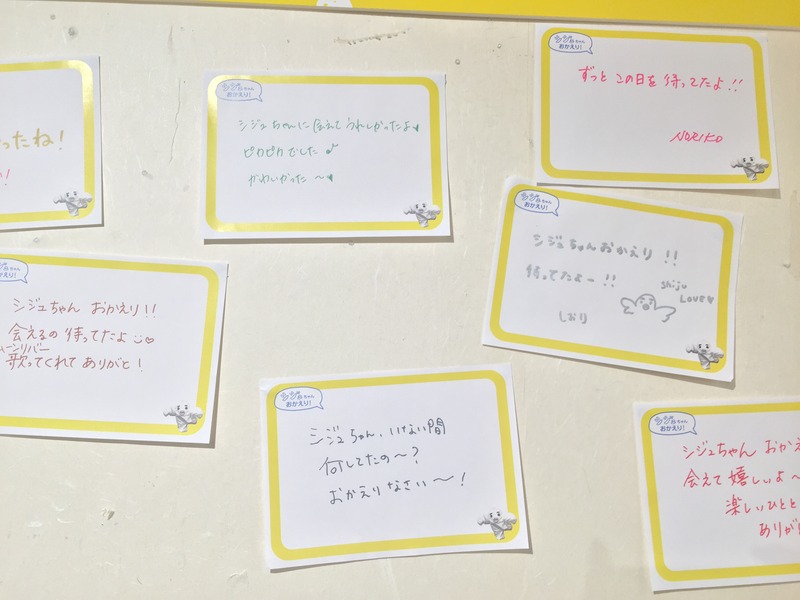 ったね！
い！
シジュちゃん
おかえり！
シジュちゃんに会えてうれしかったよ♥
ピカピカでした♪
かわいかった〜♥
シジュちゃん
おかえり！
ずっとこの日を待ってたよ!!
NORIKO
シジュちゃん
おかえり！
シジュちゃんおかえり!!
待ってたよー!!
しおり
shiju
LOVE♥
おかえり！
シジュちゃん おかえり!!
会えるの待ってたよ
ムーンリバー
歌ってくれてありがと！
シジュちゃん
おかえり！
シジュちゃん、いない間
何してたの〜？
おかえりなさい〜！
シジュちゃん
おかえり！
シジュちゃん おかえ
会えて嬉しいよ〜
楽しいひとと
ありが